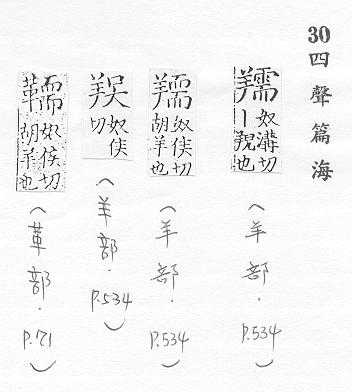 30 四聲篇海
羺 奴溝切 丨也 (羊部.P.534)
羺 奴侯切 胡羊也 (羊部.P.534)
奴侯切 (羊部.P.534)
奴侯切 胡羊也 (革部.P.71)